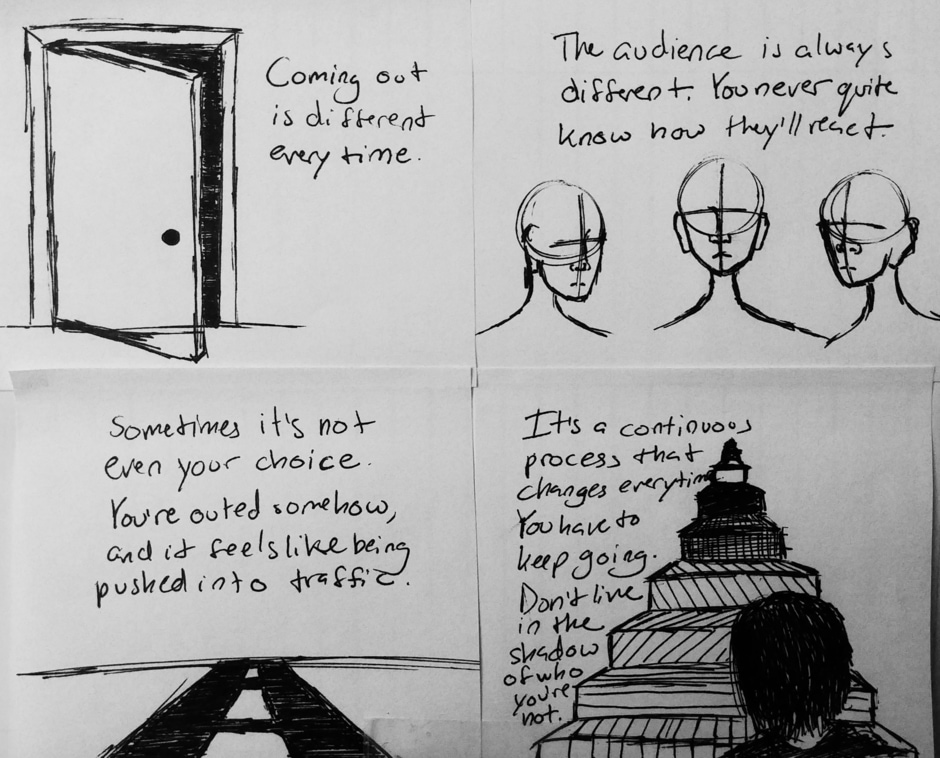 Coming out
is different
every time.
The audience is always
different. You never quite
know how they'll react.
Sometimes it's not
even your choice.
You're outed somehow,
and it feels like being
pushed into traffic.
It's a continuous
process that
changes everytime.
You have to
keep going.
Don't live
in the
shadow
of who
you're
not.